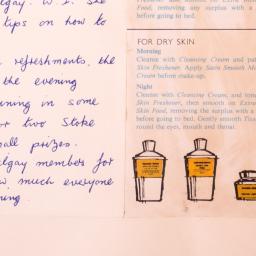 tips on how to
refreshments, the
the evening
in some
two Stoke
prizes.
members for
much everyone
Food, removing any surplus with a
before going to bed.
FOR DRY SKIN
Morning
Cleanse with Cleansing Cream and
Skin Freshener. Apply Satin Smooth
Cream before make-up.
Night
Cleanse with Cleansing Cream, and
Skin Freshener, then smooth on
Skin Food, removing any surplus with a
before going to bed. Gently smooth
round the eyes, mouth and throat.